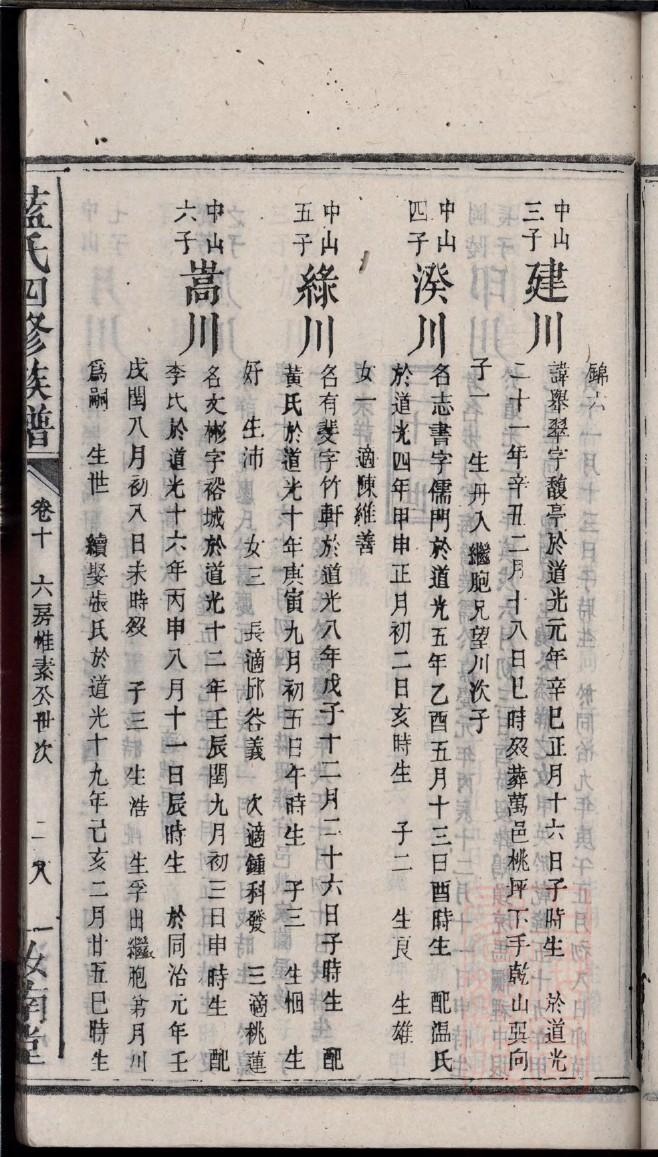 錦六
中山三子 建川 諱舉翠字馥亭於道光元年辛巳正月十六日子時生 於道光
二十一年辛丑二月十八日巳時歿葬萬邑桃坪下手乾山巽向
子一 生丹入繼胞兄望川次子
中山四子 湀川 名志書字儒門於道光五年乙酉五月十三日酉時生 配温氏
於道光四年甲申正月初二日亥時生 子二 生良 生雄
女一 適陳維善
中山五子 綠川 名有斐字竹軒於道光八年戊子十二月二十六日子時生 配
黃氏於道光十年庚寅九月初五日午時生 子三 生悃 生
好 生沛 女三 長適邱谷義 次適鍾科發 三適桃蓮
中山六子 嵩川 名文彬字裕城於道光十二年壬辰閏九月初三日申時生 配
李氏於道光十六年丙申八月十一日辰時生 於同治元年壬
戌閏八月初八日未時歿 子三 生浩 生孚出繼胞弟月川
爲嗣 生世 續娶張氏於道光十九年己亥二月廿五巳時生
藍氏四修族譜 卷十 六房惟素公世次 二十八 汝南堂